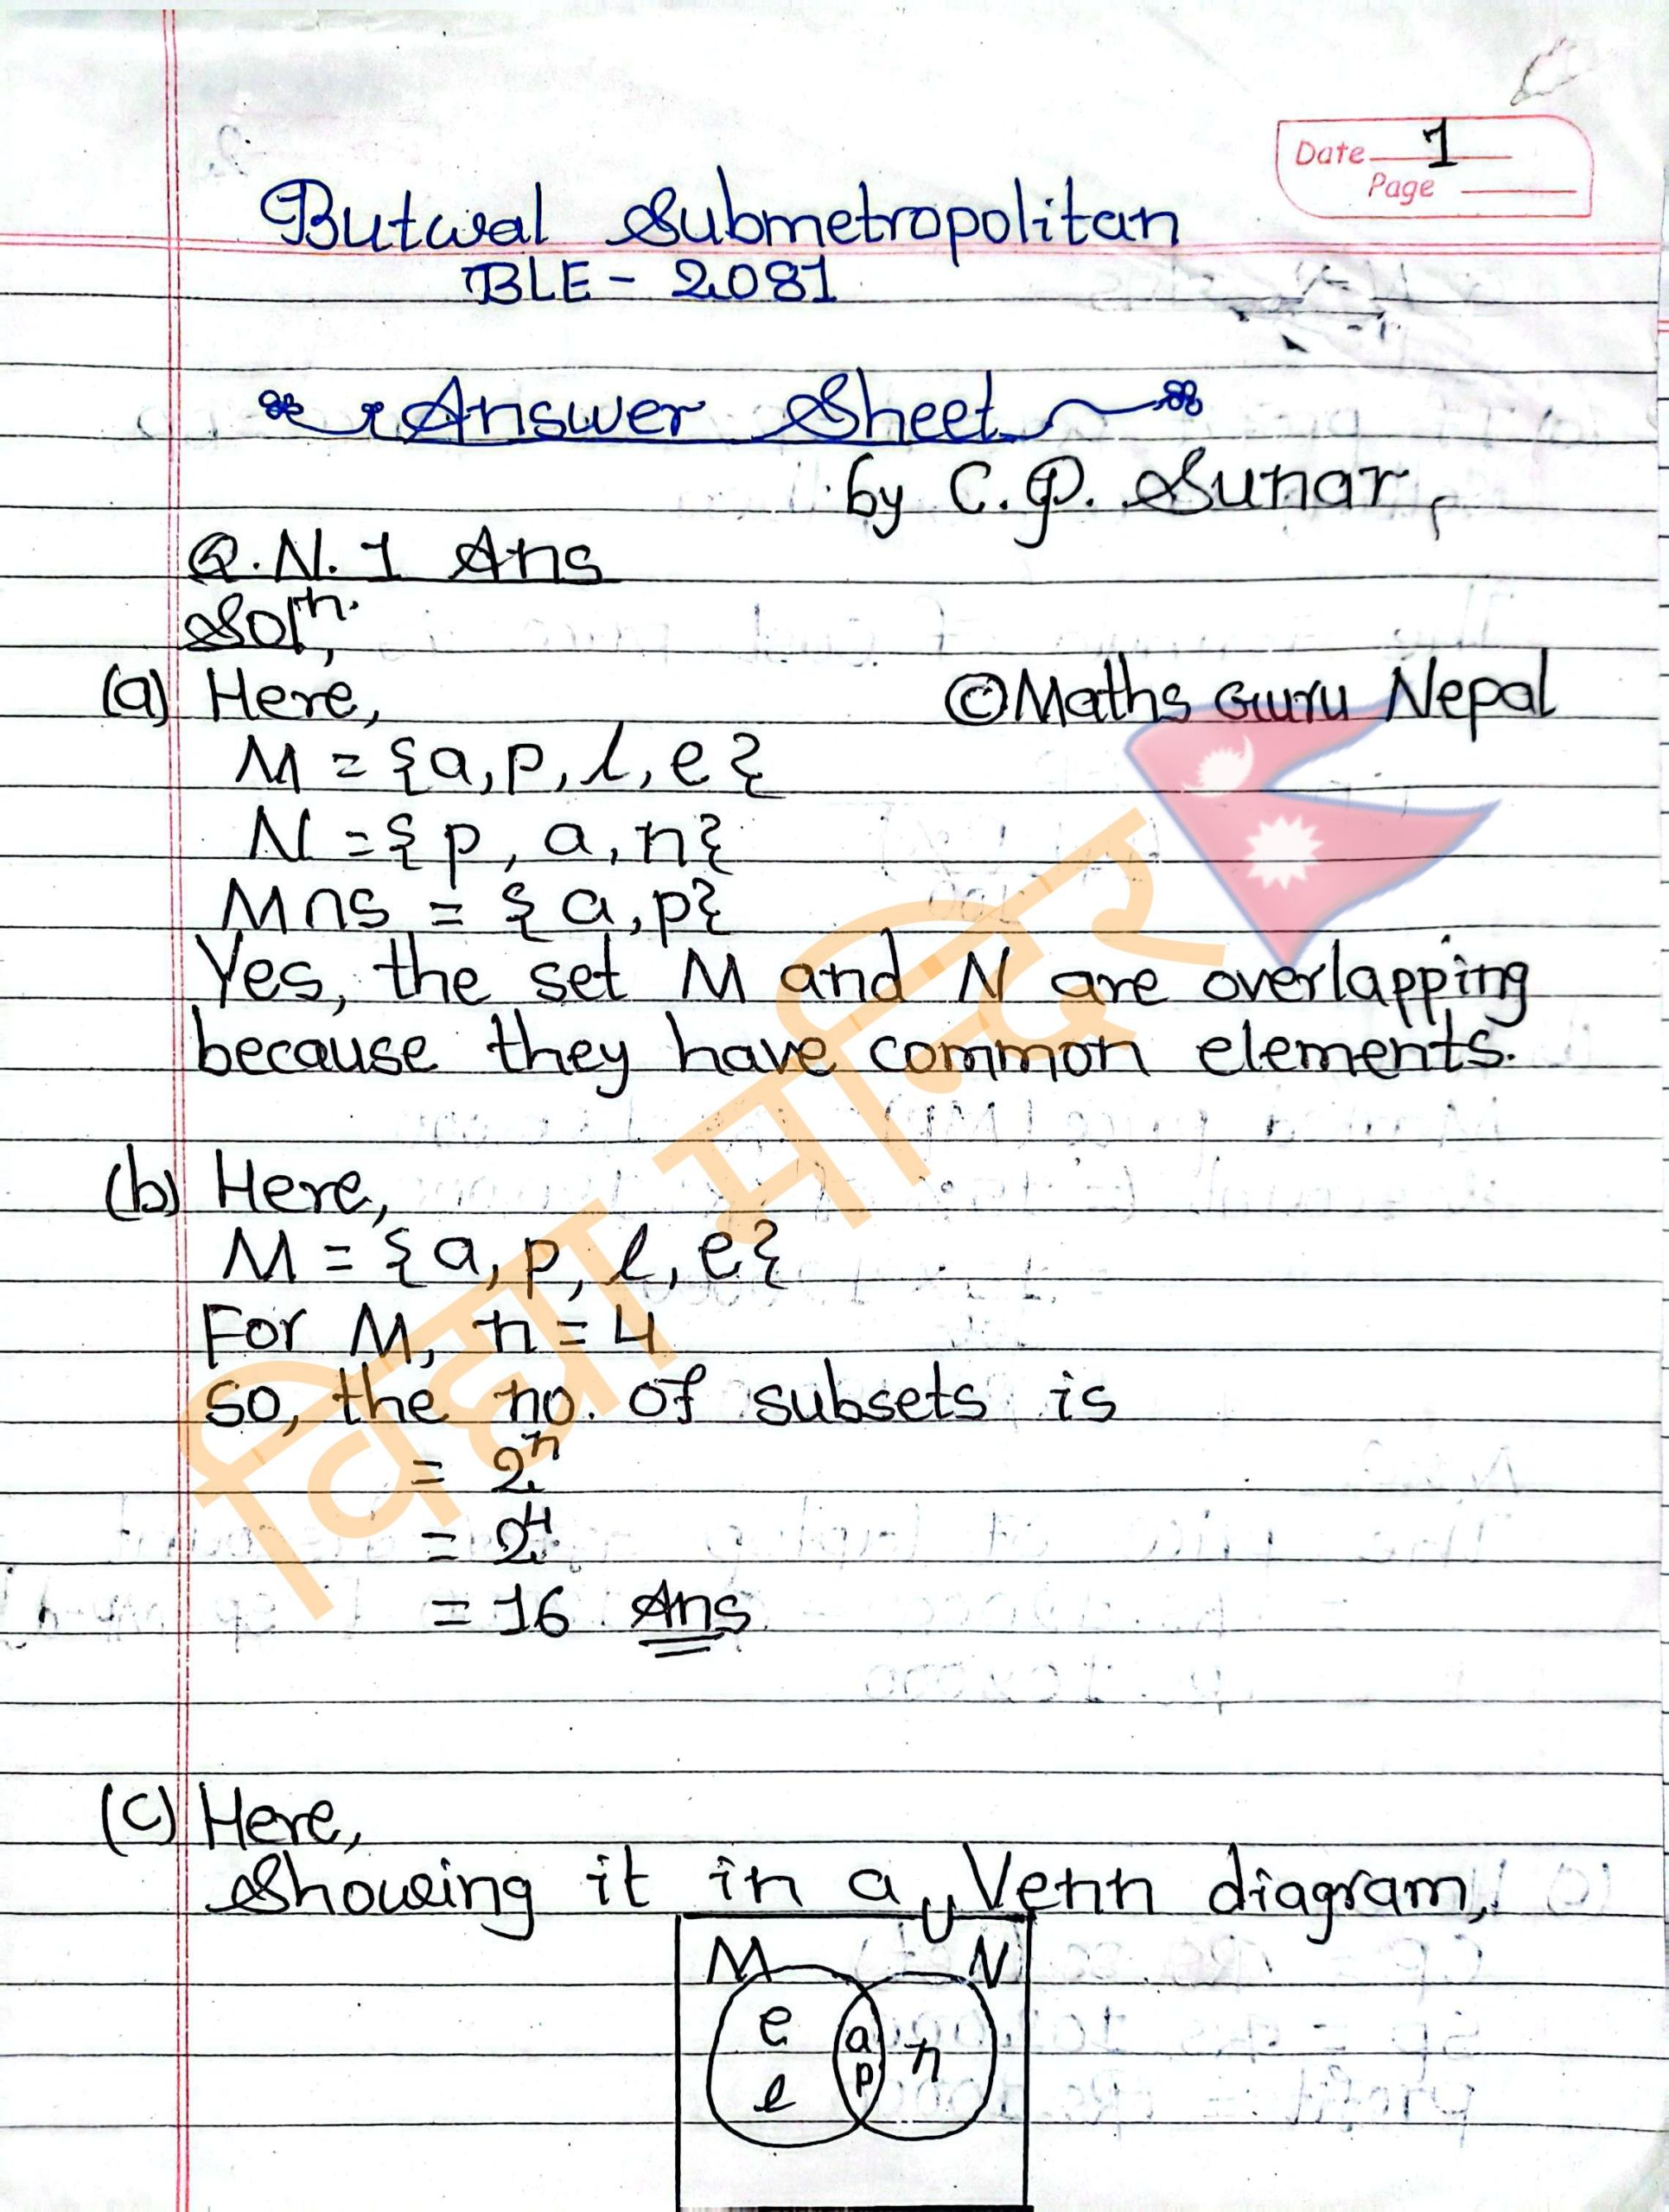 Date 1
Page
Butwal Submetropolitan
BLE - 2081
Answer Sheet
by C.P. Sunar
Q.N. 1 Ans
Solⁿ.,
(a) Here,
©Maths Guru Nepal
M = {a, p, l, e}
N = {p, a, n}
M∩S = {a, p}
Yes, the set M and N are overlapping
because they have common elements.
विद्या मन्दिर
(b) Here,
M = {a, p, l, e}
For M, n = 4
so, the no. of subsets is
= 2ⁿ
= 2⁴
= 16 Ans
(c) Here,
Showing it in a Venn diagram,
U
M N
e a n
l p